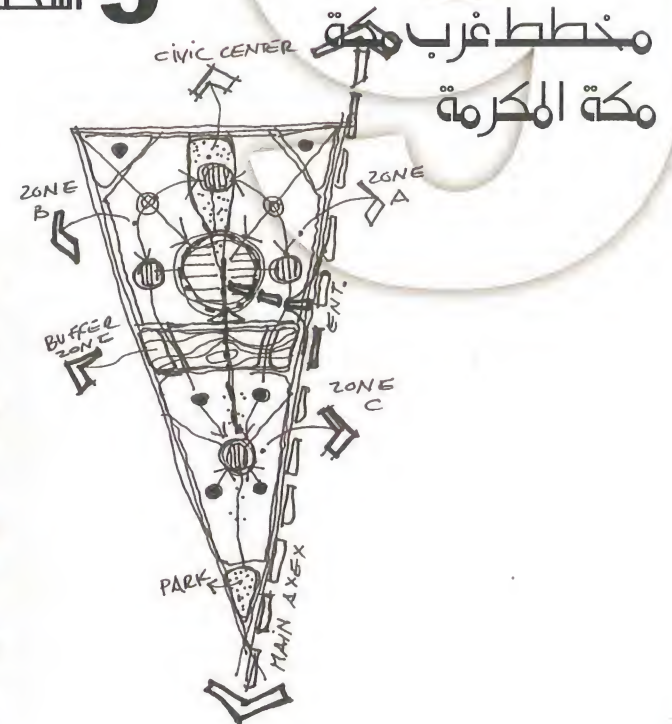 5
مخطط غرب مكة
مكة المكرمة
CIVIC CENTER
ZONE
B
ZONE
A
ENT.
BUFFER
ZONE
ZONE
C
PARK
MAIN AXEX